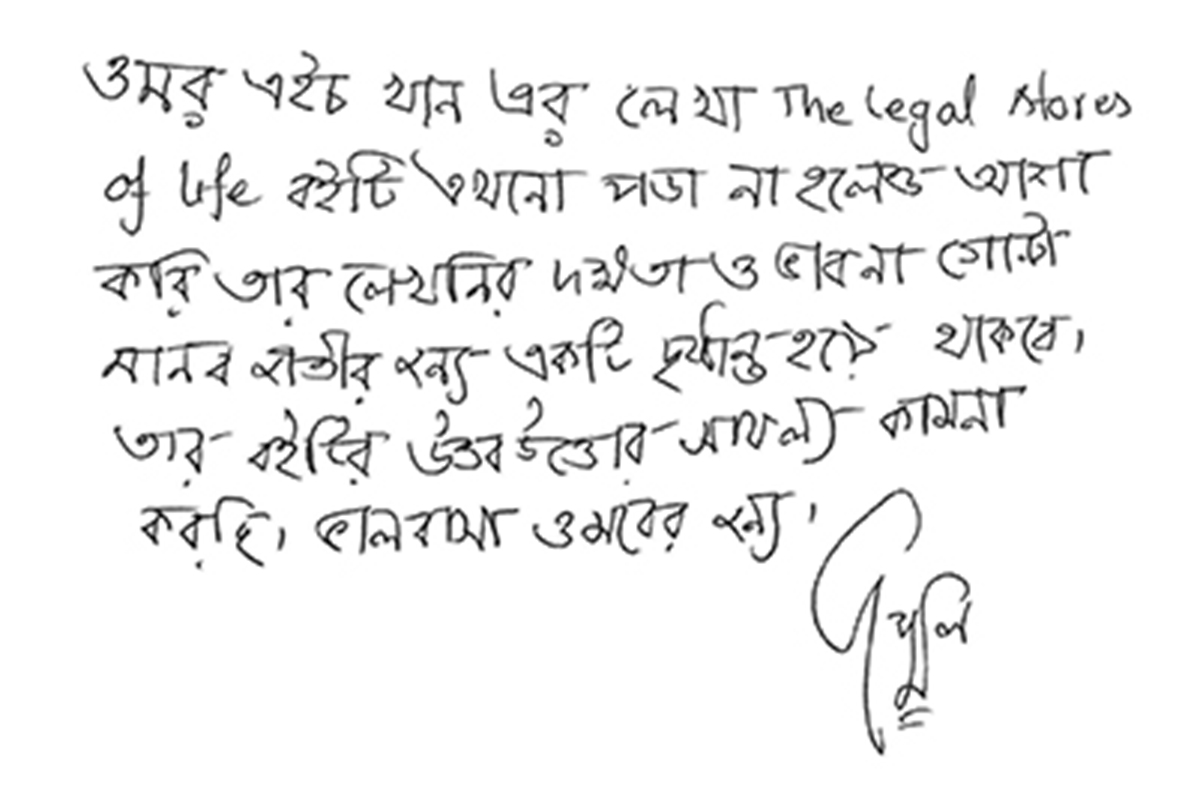 ওমর এইচ খান এর লেখা The Legal stores
of life বইটি এখনো পড়া না হলেও আশা
করি তার লেখনির দক্ষতা ও ভাবনা গোটা
মানব জাতীর জন্য একটি দৃষ্টান্ত হয়ে থাকবে।
তার বইটির উত্তর উত্তোর সাফল্য কামনা
করছি। ভালবাসা ওমরের জন্য।